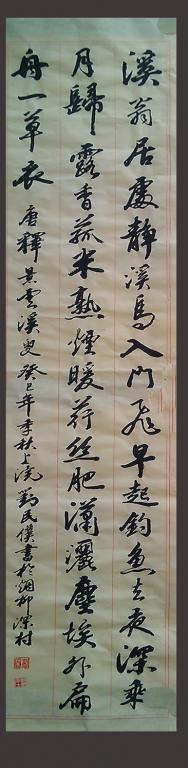 溪翁居處靜溪鳥入門飛早起釣魚去夜深乘
月歸露香菰米熟煙暖荇丝肥瀟灑塵埃外扁
舟一草衣 唐釋景雲溪叟癸巳年季秋上浣劉民僕書於烟柳深村